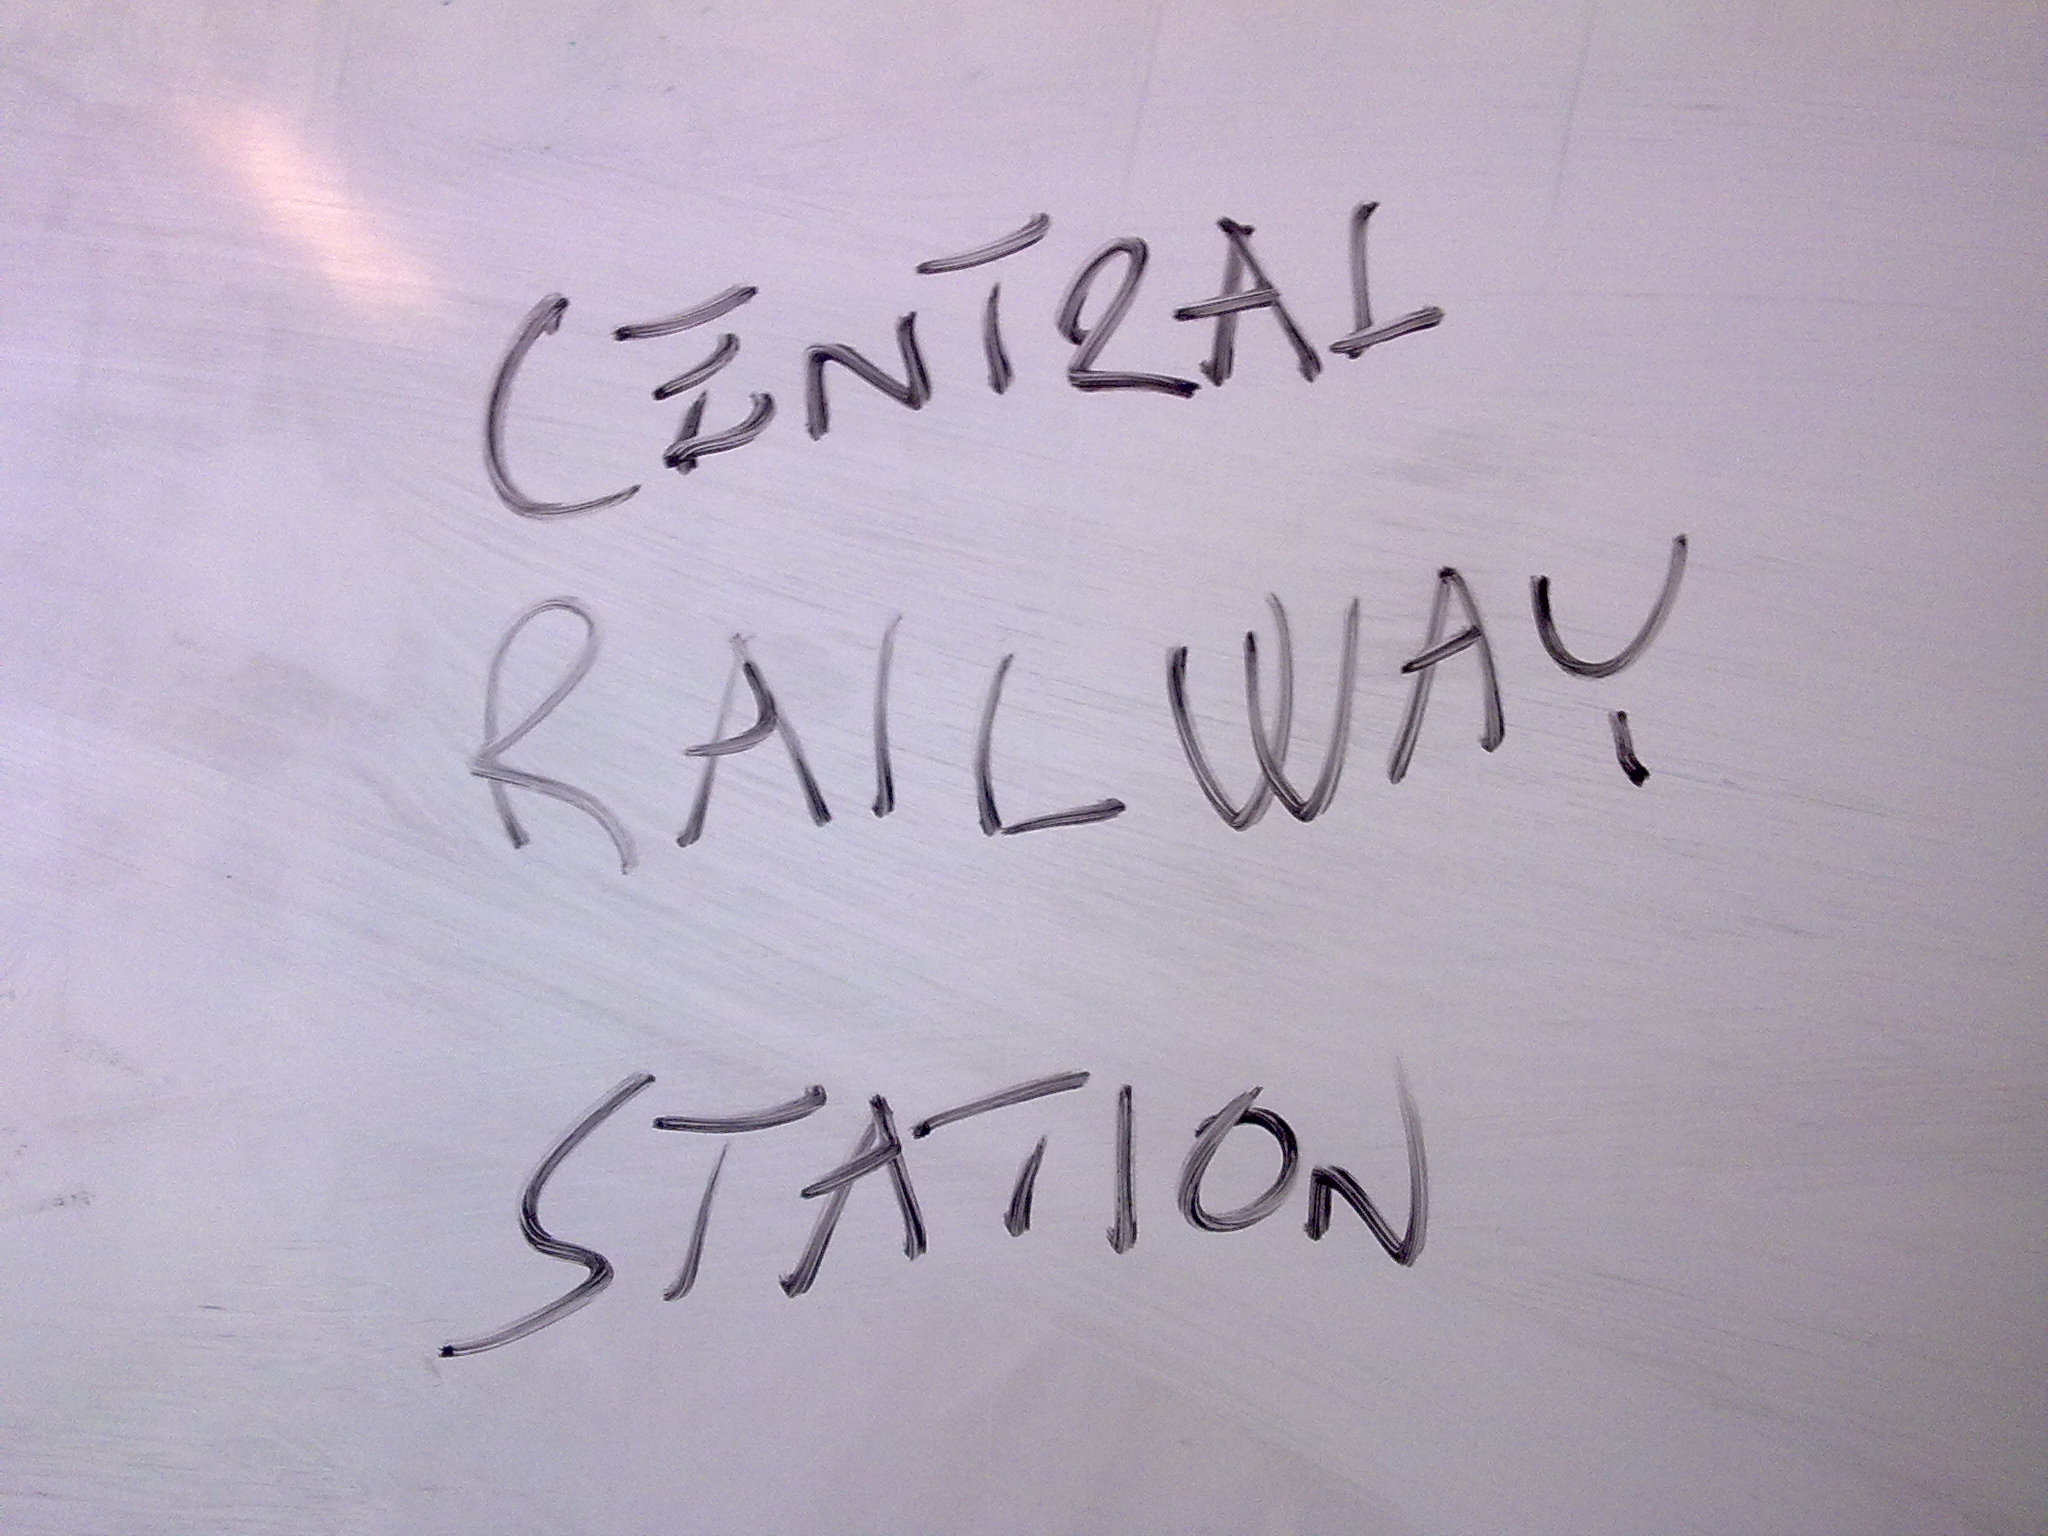 CENTRAL
RAILWAY
STATION